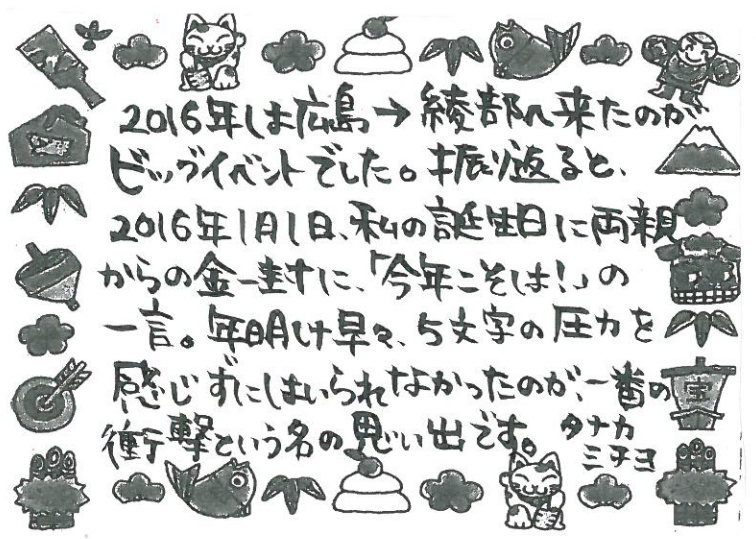 2016年は広島→綾部へ来たのが
ビッグイベントでした。振り返ると、
2016年1月1日、私の誕生日に両親
からの金一封に、「今年こそは!」の
一言。年明け早々、5文字の圧力を
感じずにはいられなかったのが、一番の
衝撃という名の思い出です。タナカ
ミチヨ
宝